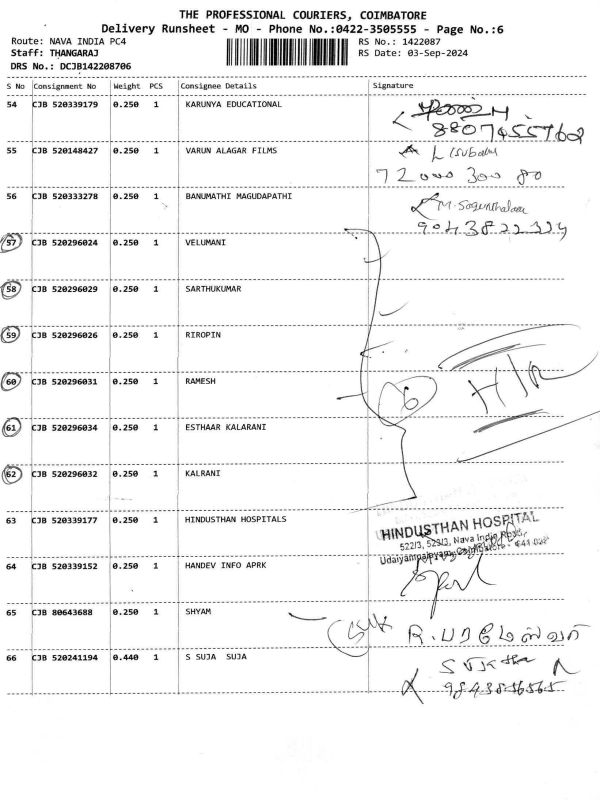 THE PROFESSIONAL COURIERS, COIMBATORE
Delivery Runsheet - MO - Phone No.:0422-3505555 - Page No.:6
Route: NAVA INDIA PC4
RS No.: 1422087
Staff: THANGARAJ
RS Date: 03-Sep-2024
DRS No.: DCJB142208706
S No Consignment No Weight PCS Consignee Details Signature
54 CJB 520339179 0.250 1 KARUNYA EDUCATIONAL
8807455762
55 CJB 520148427 0.250 1 VARUN ALAGAR FILMS
72000 300 80
56 CJB 520333278 0.250 1 BANUMATHI MAGUDAPATHI
M. Sagunthalaa
9043822334
57 CJB 520296024 0.250 1 VELUMANI
58 CJB 520296029 0.250 1 SARTHUKUMAR
59 CJB 520296026 0.250 1 RIROPIN
60 CJB 520296031 0.250 1 RAMESH
6
61 CJB 520296034 0.250 1 ESTHAAR KALARANI
62 CJB 520296032 0.250 1 KALRANI
63 CJB 520339177 0.250 1 HINDUSTHAN HOSPITALS
HINDUSTHAN HOSPITAL
522/3, 523/3, Nava India Road,
Udaiyampalayam, Coimbatore - 641 028
64 CJB 520339152 0.250 1 HANDEV INFO APRK
65 CJB 80643688 0.250 1 SHYAM
R. பரமேஸ்வரி
66 CJB 520241194 0.440 1 S SUJA SUJA
Sujatha
9843856565